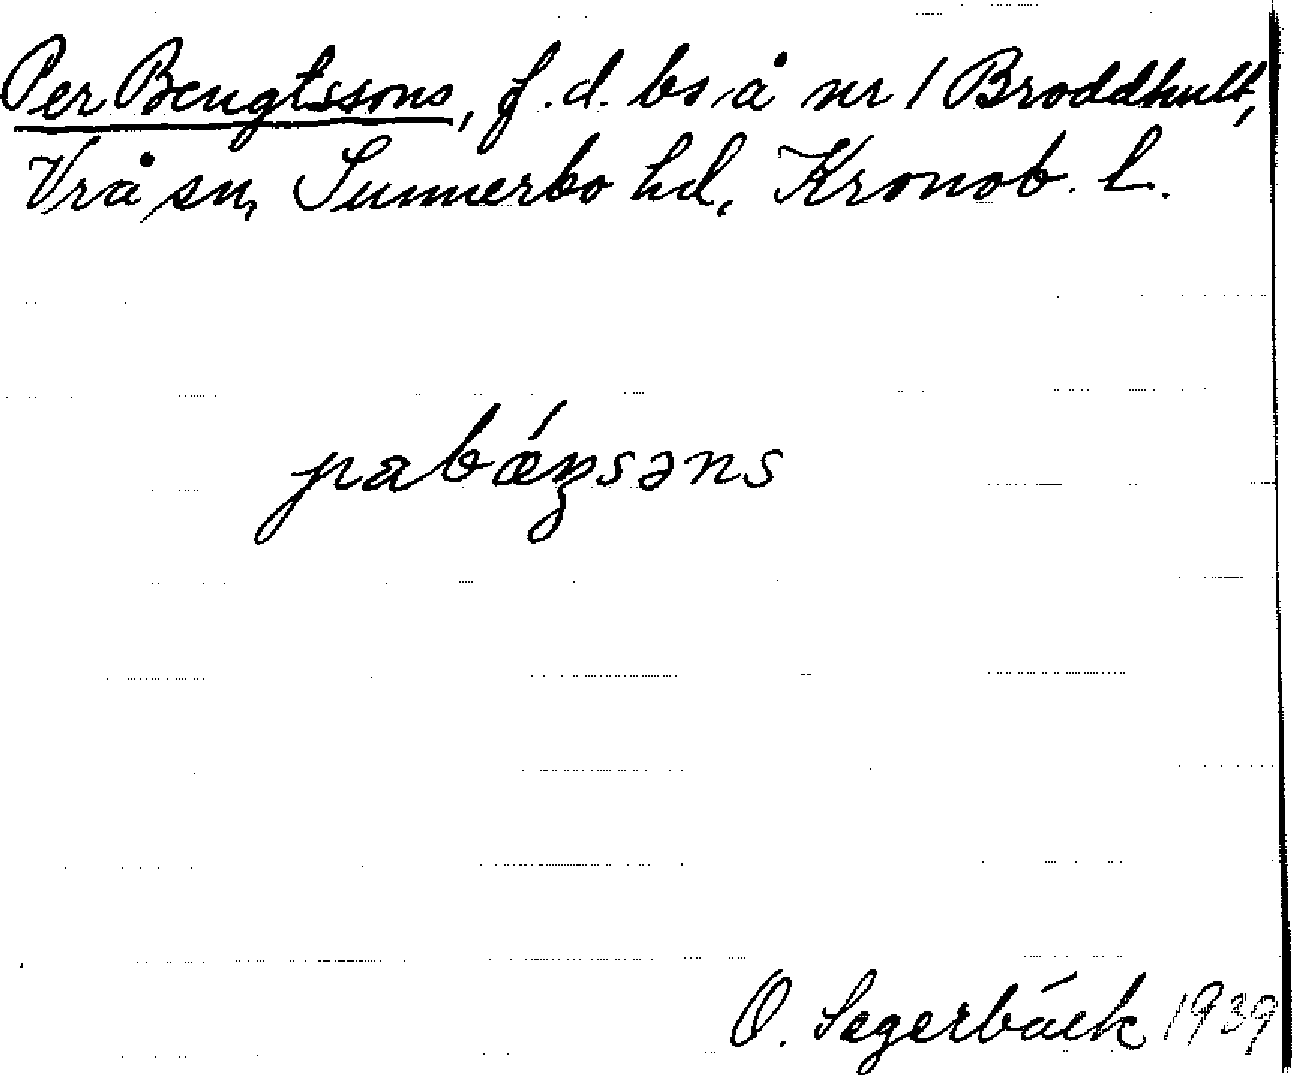 Per Bengtssons, f.d. bs å nr 1 Broddhult,
Vrå sn, Sunnerbo hd, Kronob. L.
pabǽŋsəns
O. Segerbäck 1939